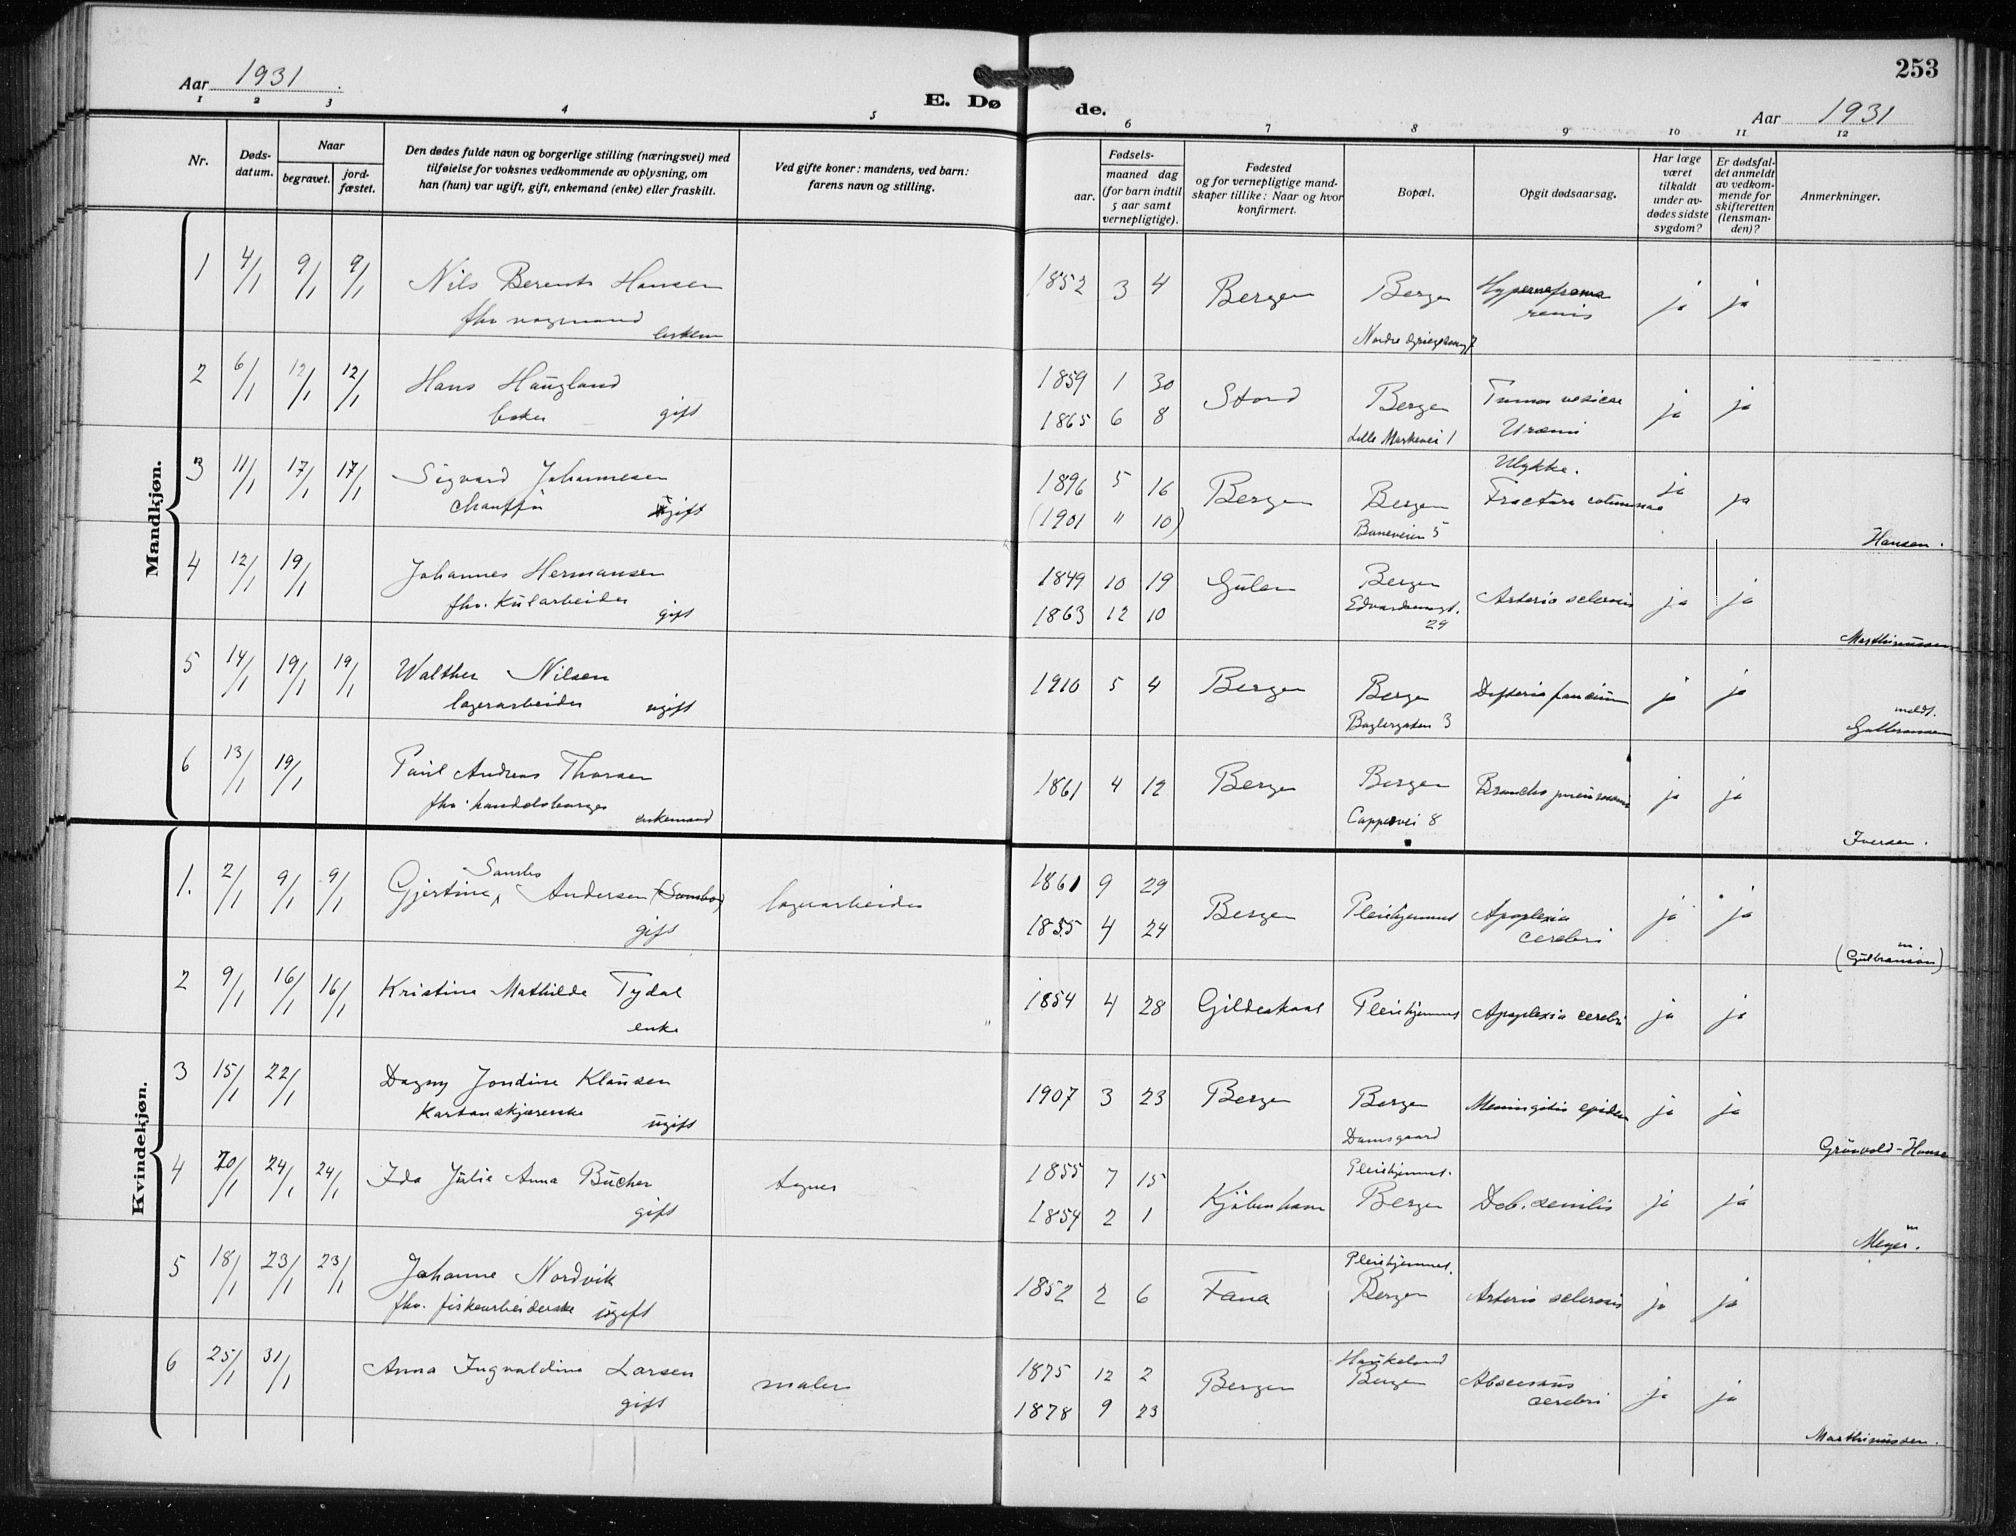 Aar 1931.
E. Døde.
Aar 1931
253
1 2 3 4 5 6 7 8 9 10 11 12
Nr.
Døds-
datum.
Naar
begravet.
jord-
fæstet.
Den dødes fulde navn og borgerlige stilling (næringsvei) med
tilføielse for voksnes vedkommende av oplysning, om
han (hun) var ugift, gift, enkemand (enke) eller fraskilt.
Ved gifte koner: mandens, ved barn:
farens navn og stilling.
Fødsels-
aar.
maaned dag
(for barn indtil
5 aar samt
vernepligtige).
Fødested
og for vernepligtige mand-
skaper tillike: Naar og hvor
konfirmert.
Bopæl.
Opgit dødsaarsag.
Har læge
været
tilkaldt
under av-
dødes sidste
sygdom?
Er dødsfal-
det anmeldt
av vedkom-
mende for
skifteretten
(lensman-
den)?
Anmerkninger.
Mandkjøn.
1 4/1 9/1 9/1 Nils Berents Hansen 1852 3 4 Bergen Bergen ja ja
fhv. vognmand
renis
2 6/1 12/1 12/1 Hans Haugland 1859 1 30 Stord Bergen Tumor vesicae ja ja
gift 1865 6 8 Lille Markevei 1 Uræmi
3 11/1 17/1 17/1 Sigvard Johannesen 1896 5 16 Bergen Bergen Ulykke. ja ja
chauffør gift (1901 " 10) Baneveien 5 Fractura columnae
Hansen.
4 12/1 19/1 Johannes Hermansen 1849 10 19 Gulen Bergen Arterio sclerosis ja ja
fhv. Kularbeider gift 1863 12 10 Edvardsensgt. 29
Marthinussen
5 14/1 19/1 19/1 Walther Nilsen 1910 5 4 Bergen Bergen Difteria faucium ja ja
lagerarbeider ugift Baglergaten 3
meldt.
Gulbransen
6 13/1 19/1 Paul Andreas Thorsen 1861 4 12 Bergen Bergen Broncho pneumoni ja ja
fhv. handelsborger enkemand Cappesvei 8
Iversen.
Kvindekjøn.
1. 2/1 9/1 9/1 Gjertine Sambo Andersen (Sambo) lagerarbeider 1861 9 29 Bergen Pleiehjemmet Apoplexia ja ja
gift 1855 4 24 cerebri
m.
(Gulbranson)
2 9/1 16/1 16/1 Kristine Mathilde Tydal 1854 4 28 Gildeskaal Pleiehjemmet Apoplexia cerebri ja ja
enke
3 15/1 22/1 Dagny Jondine Klausen 1907 3 23 Bergen Bergen Meningitis epidem ja ja
Kartonskjærerske ugift Damsgaard
Grönvold-Hansen
4 20/1 24/1 24/1 Ida Julie Anna Bucher tegner 1855 7 15 Kjøbenhavn Pleiehjemmet. Deb. senilis ja ja
gift 1854 2 1 Bergen
m
Meyer.
5 18/1 23/1 23/1 Johanne Nordvik 1852 2 6 Fana Pleiehjemmet. Arterio sclerosis ja ja
fhv. fiskearbeiderske ugift Bergen
6 25/1 31/1 Anna Ingvaldine Larsen maler 1875 12 2 Bergen Haukeland Abscessus ja ja
gift 1878 9 23 Bergen cerebri
Marthinussen.